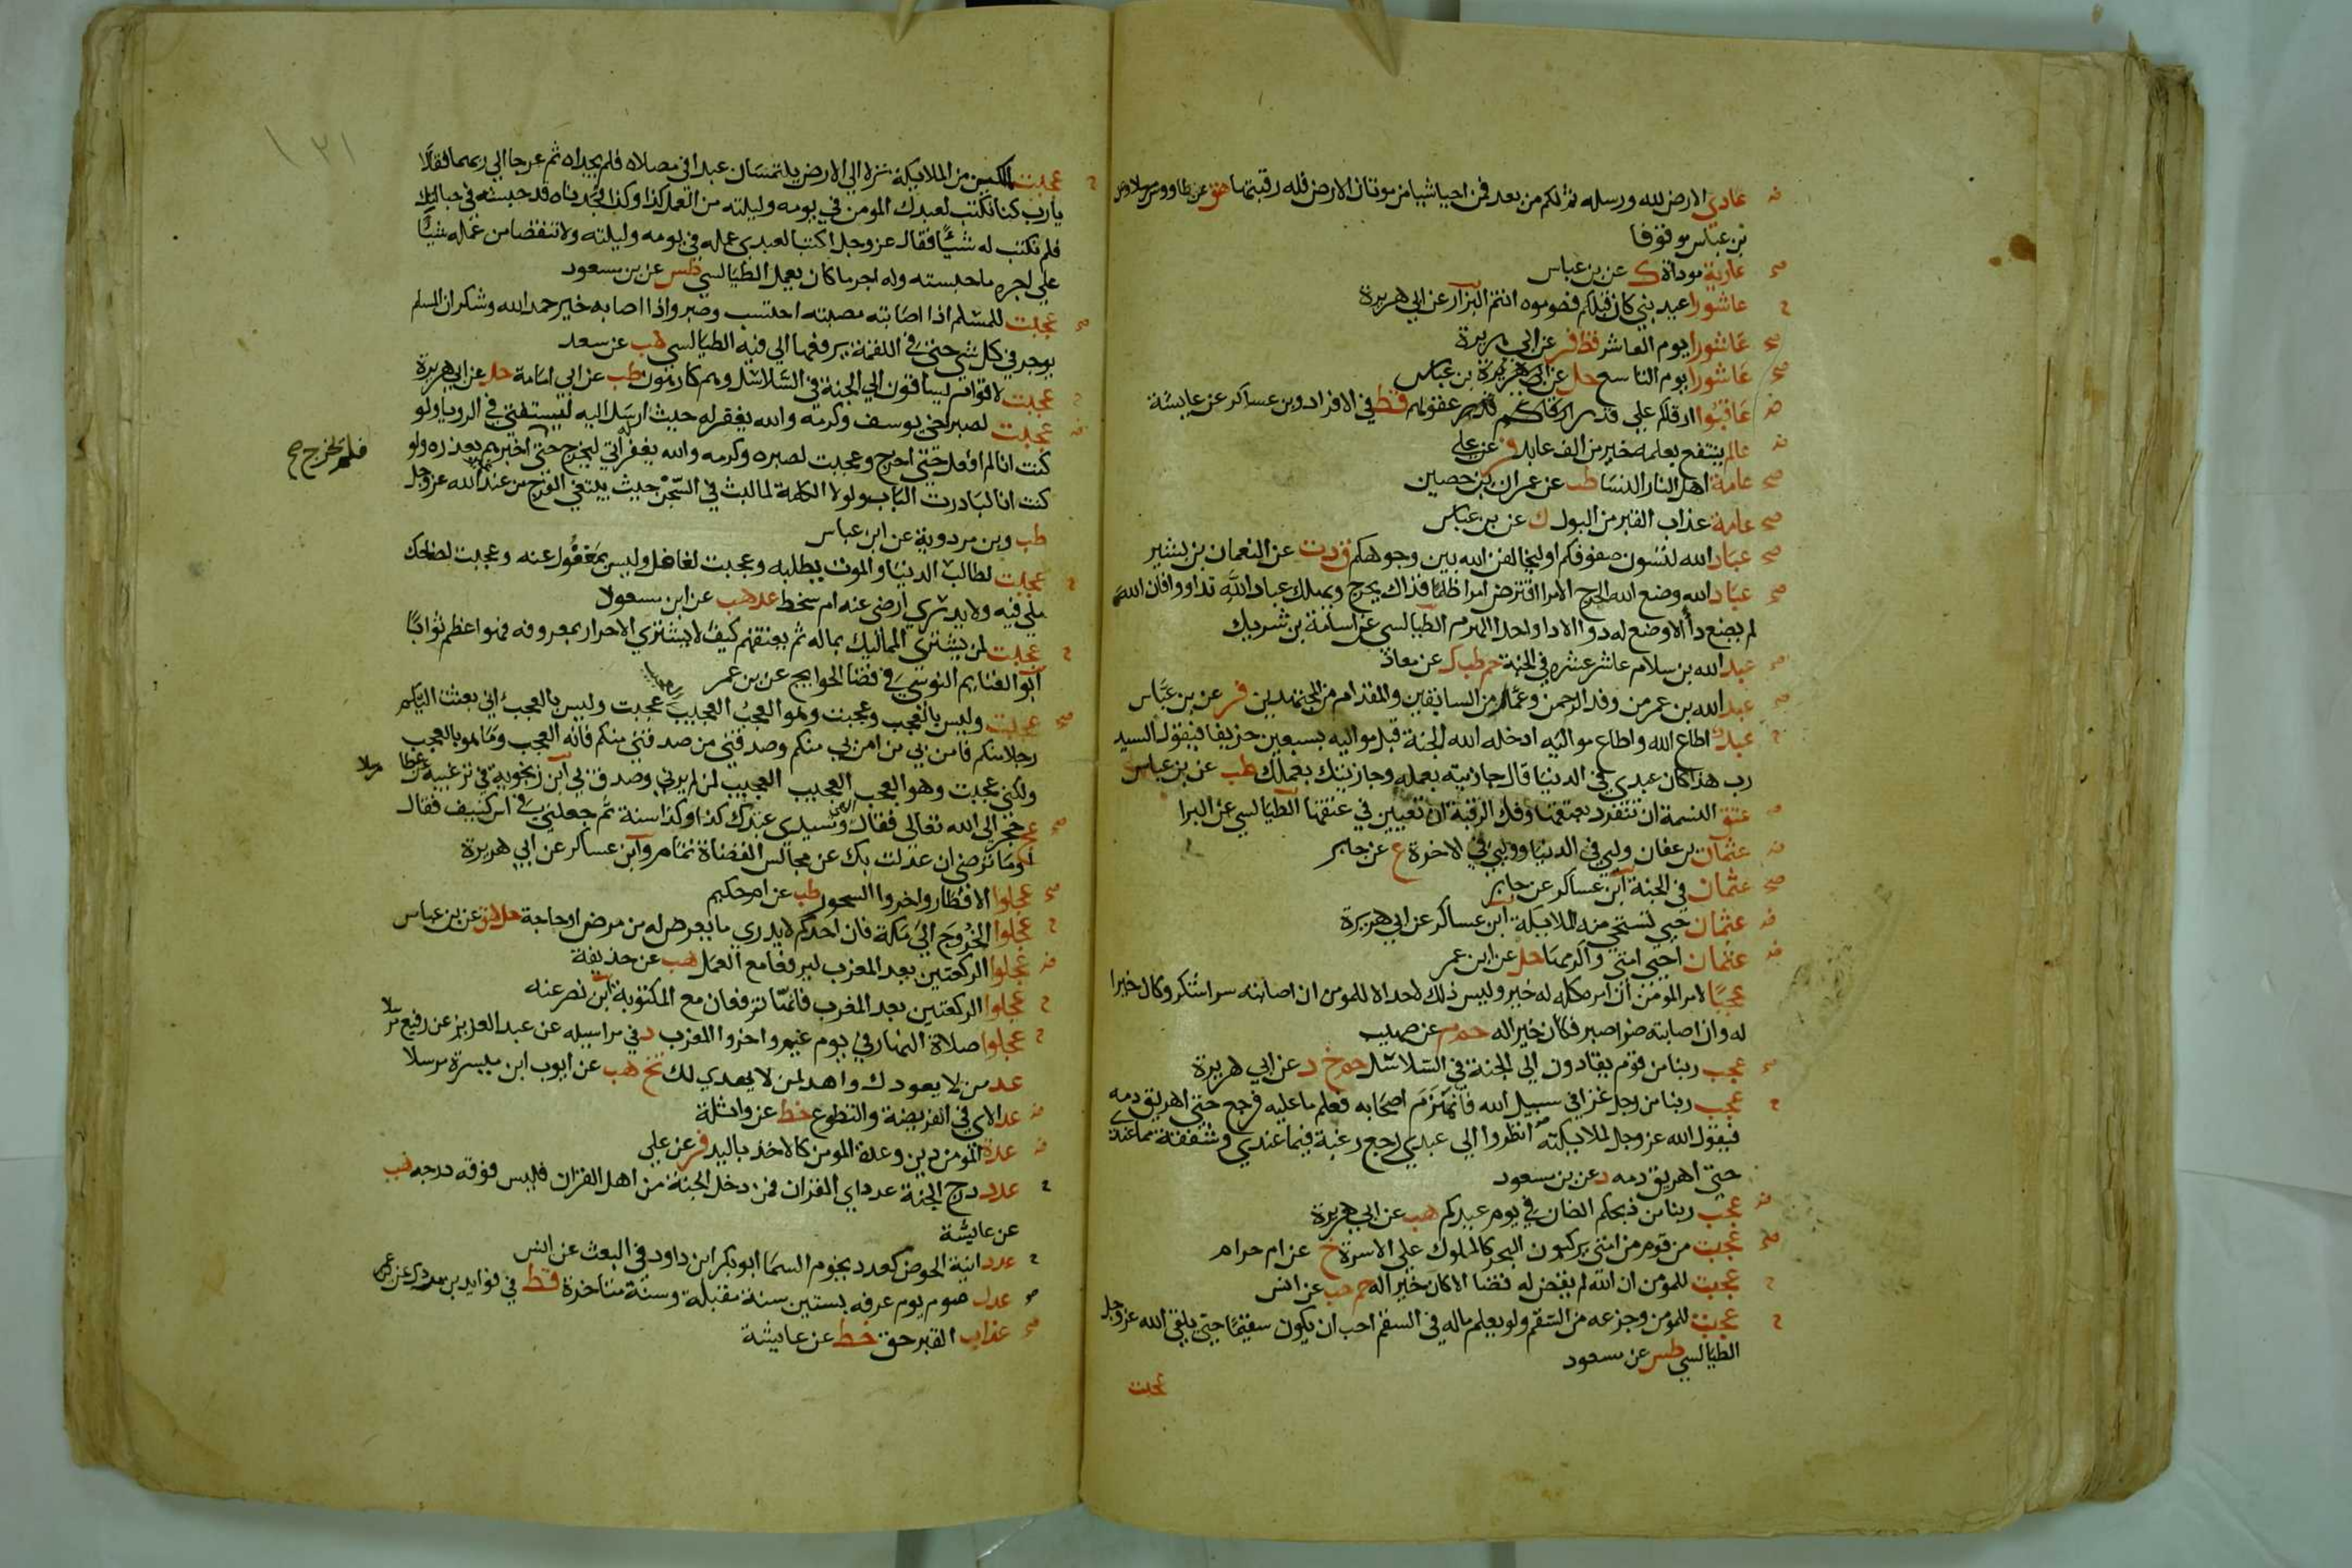 عادي الارض لله ورسله ثم لكم من بعد فمن احيا شيا من موتان الارض فله رقبتها هق عن طاووس مرسلا وعن
بن عباس موقوفا
عارية موداة ك عن بن عباس
عاشورا عيد نبي كان قبلكم فصوموه انتم البزار عن ابي هريرة
عاشورا يوم العاشر قط فر عن ابي هريرة
عاشورا يوم التاسع حل عن بن عباس
عاقبوا ارقاكم علي قدر عقولهم قط في الافراد وبن عساكر عن عايشة
عالم ينتفع بعلمه خير من الف عابد فر عن علي
عامة اهل النار النسا طب عن عمران بن حصين
عامة عذاب القبر من البول ك عن بن عباس
عباد الله لتسون صفوفكم او ليخالفن الله بين وجوهكم ق د ت عن النعمان بن بشير
عباد الله وضع الله الحرج الا امرا اقترض امرا ظلما فذاك يحرج ويهلك عباد الله تداووا فان الله
لم يضع دأ الا وضع له دوا الا دا واحدا الهرم الطيالسي عن اسامة بن شريك
عبد الله بن سلام عاشر عشره في الجنة حم طب ك عن معاذ
عبد الله بن عمر من وفد الرحمن وعمار من السابقين والمقدام من المجتهدين فر عن بن عباس
عبد اطاع الله واطاع مواليه ادخله الله الجنة قبل مواليه بسبعين خريفا فيقول السيد
رب هذا كان عبدي في الدنيا قال جازيته بعمله وجازيتك بعملك طب عن بن عباس
عتق النسمة ان تتفرد بعتقها وفك الرقبة ان تعين في عتقها الطيالسي عن البرا
عثمان بن عفان وليي في الدنيا ووليي في الاخرة ع عن جابر
عثمان في الجنة ابن عساكر عن جابر
عثمان حيي تستحي منه الملايكة ابن عساكر عن ابي هريرة
عثمان احيي امتي واكرمها حل عن ابن عمر
عجبا لامر المومن ان امره كله له خير وليس ذلك لاحد الا للمومن ان اصابته سرا شكر وكان خيرا
له وان اصابته ضرا صبر فكان خيرا له حم م عن صهيب
عجب ربنا من قوم يقادون الى الجنة في السلاسل حم خ د عن ابي هريرة
عجب ربنا من رجل غزا في سبيل الله فانهزم اصحابه فعلم ما عليه فرجع حتي اهريق دمه
فيقول الله عز وجل لملايكته انظروا الي عبدي رجع رغبة فيما عندي وشفقة مما عندي
حتي اهريق دمه د عن بن مسعود
عجب ربنا من ذبحكم الضان في يوم عيدكم هب عن ابي هريرة
عجبت من قوم من امتي يركبون البحر كالملوك علي الاسرة خ عن ام حرام
عجبت للمومن ان الله لم يقض له قضا الا كان خيرا له حم حب عن انس
عجبت للمومن وجزعه من السقم ولو يعلم ماله في السقم احب ان يكون سقيما حتي يلقي الله عز وجل
الطيالسي طس عن مسعود
عجبت
١٢١
عجبت لملكين من الملايكة نزلا الي الارض يلتمسان عبدا في مصلاه فلم يجداه ثم عرجا الي ربهما فقالا
يارب كنا نكتب لعبدك المومن في يومه وليلته من العمل كذا وكذا فوجدناه قد حبسته في حبالك
فلم نكتب له شيئا فقال عز وجل اكتبا لعبدي عمله في يومه وليلته ولا تنقصا من عمله شيئا
علي اجره ما حبسته وله اجر ما كان يعمل الطيالسي طس عن بن مسعود
عجبت للمسلم اذا اصابته مصيبته احتسب وصبر واذا اصابه خير حمد الله وشكر ان المسلم
يوجر في كل شي حتي في اللقمة يرفعها الي فيه الطيالسي هب عن سعد
عجبت لاقوام يساقون الي الجنة في السلاسل وهم كارهون طب عن ابي امامة حل عن ابي هريرة
عجبت لصبر اخي يوسف وكرمه والله يغفر له حيث ارسل اليه ليستفتي في الرويا ولو
كنت انا لم افعل حتي اخرج وعجبت لصبره وكرمه والله يغفر له اتي ليخرج حتي اخبرهم بعذره ولو
فلم يخرج صح
كنت انا لبادرت الباب ولولا الكلمة لما لبث في السجن حيث يبتغي الفرج من عند الله عز وجل
طب وبن مردوية عن ابن عباس
عجبت لطالب الدنيا والموت يطلبه وعجبت لغافل وليس بمغفول عنه وعجبت لضاحك
ملي فيه ولا يدري أرضي عنه ام سخط عد هب عن ابن مسعود
عجبت لمن يشتري المماليك بماله ثم يعتقهم كيف لا يشتري الاحرار بمعروفه فهو اعظم ثوابا
ابو الغنايم النوسي في قضا الحوايج عن بن عمر
عجبت وليس بالعجب وعجبت وهو العجب العجيب عجبت وليس بالعجب اني بعثت اليكم
رجلا منكم فامن بي من امن بي منكم وصدقني من صدقني منكم فانه العجب وما هو بالعجب
ولكني عجبت وهو العجب العجيب العجيب لمن لم يرني وصدق بي ابن زنجوية في ترغيبه عن عطا مرسلا
عج حجر الي الله تعالي فقال الهي وسيدي عبدتك كذا وكذا سنة ثم جعلتني في اس كنيف فقال
أوما ترضي ان عدلت بك عن مجالس القضاة تمام وابن عساكر عن ابي هريرة
عجلوا الافطار واخروا السحور طب عن ام حكيم
عجلوا الخروج الي مكة فان احدكم لا يدري ما يعرض له من مرض او حاجة حل هق عن بن عباس
عجلوا الركعتين بعد المغرب ليرفعا مع العمل هب عن حذيفة
عجلوا الركعتين بعد المغرب فانهما ترفعان مع المكتوبة ابن نصر عنه
عجلوا صلاة النهار في يوم غيم واخروا المغرب د في مراسيله عن عبد العزيز عن رفيع مرسلا
عد من لا يعودك واهد لمن لا يهدي لك تخ هب عن ايوب ابن ميسرة مرسلا
عد الاي في الفريضة والتطوع خط عن واثلة
عدة المومن دين وعدة المومن كالاخذ باليد فر عن علي
عدد درج الجنة عدد اي القران فمن دخل الجنة من اهل القران فليس فوقه درجه هب
عن عايشة
عدد انية الحوض كعدد نجوم السما ابو بكر ابن داود في البعث عن انس
عدل صوم يوم عرفه بستين سنة مقبلة وسنة متاخرة قط في فوايد بن مردك عن بن عمر
عذاب القبر حق خط عن عايشة